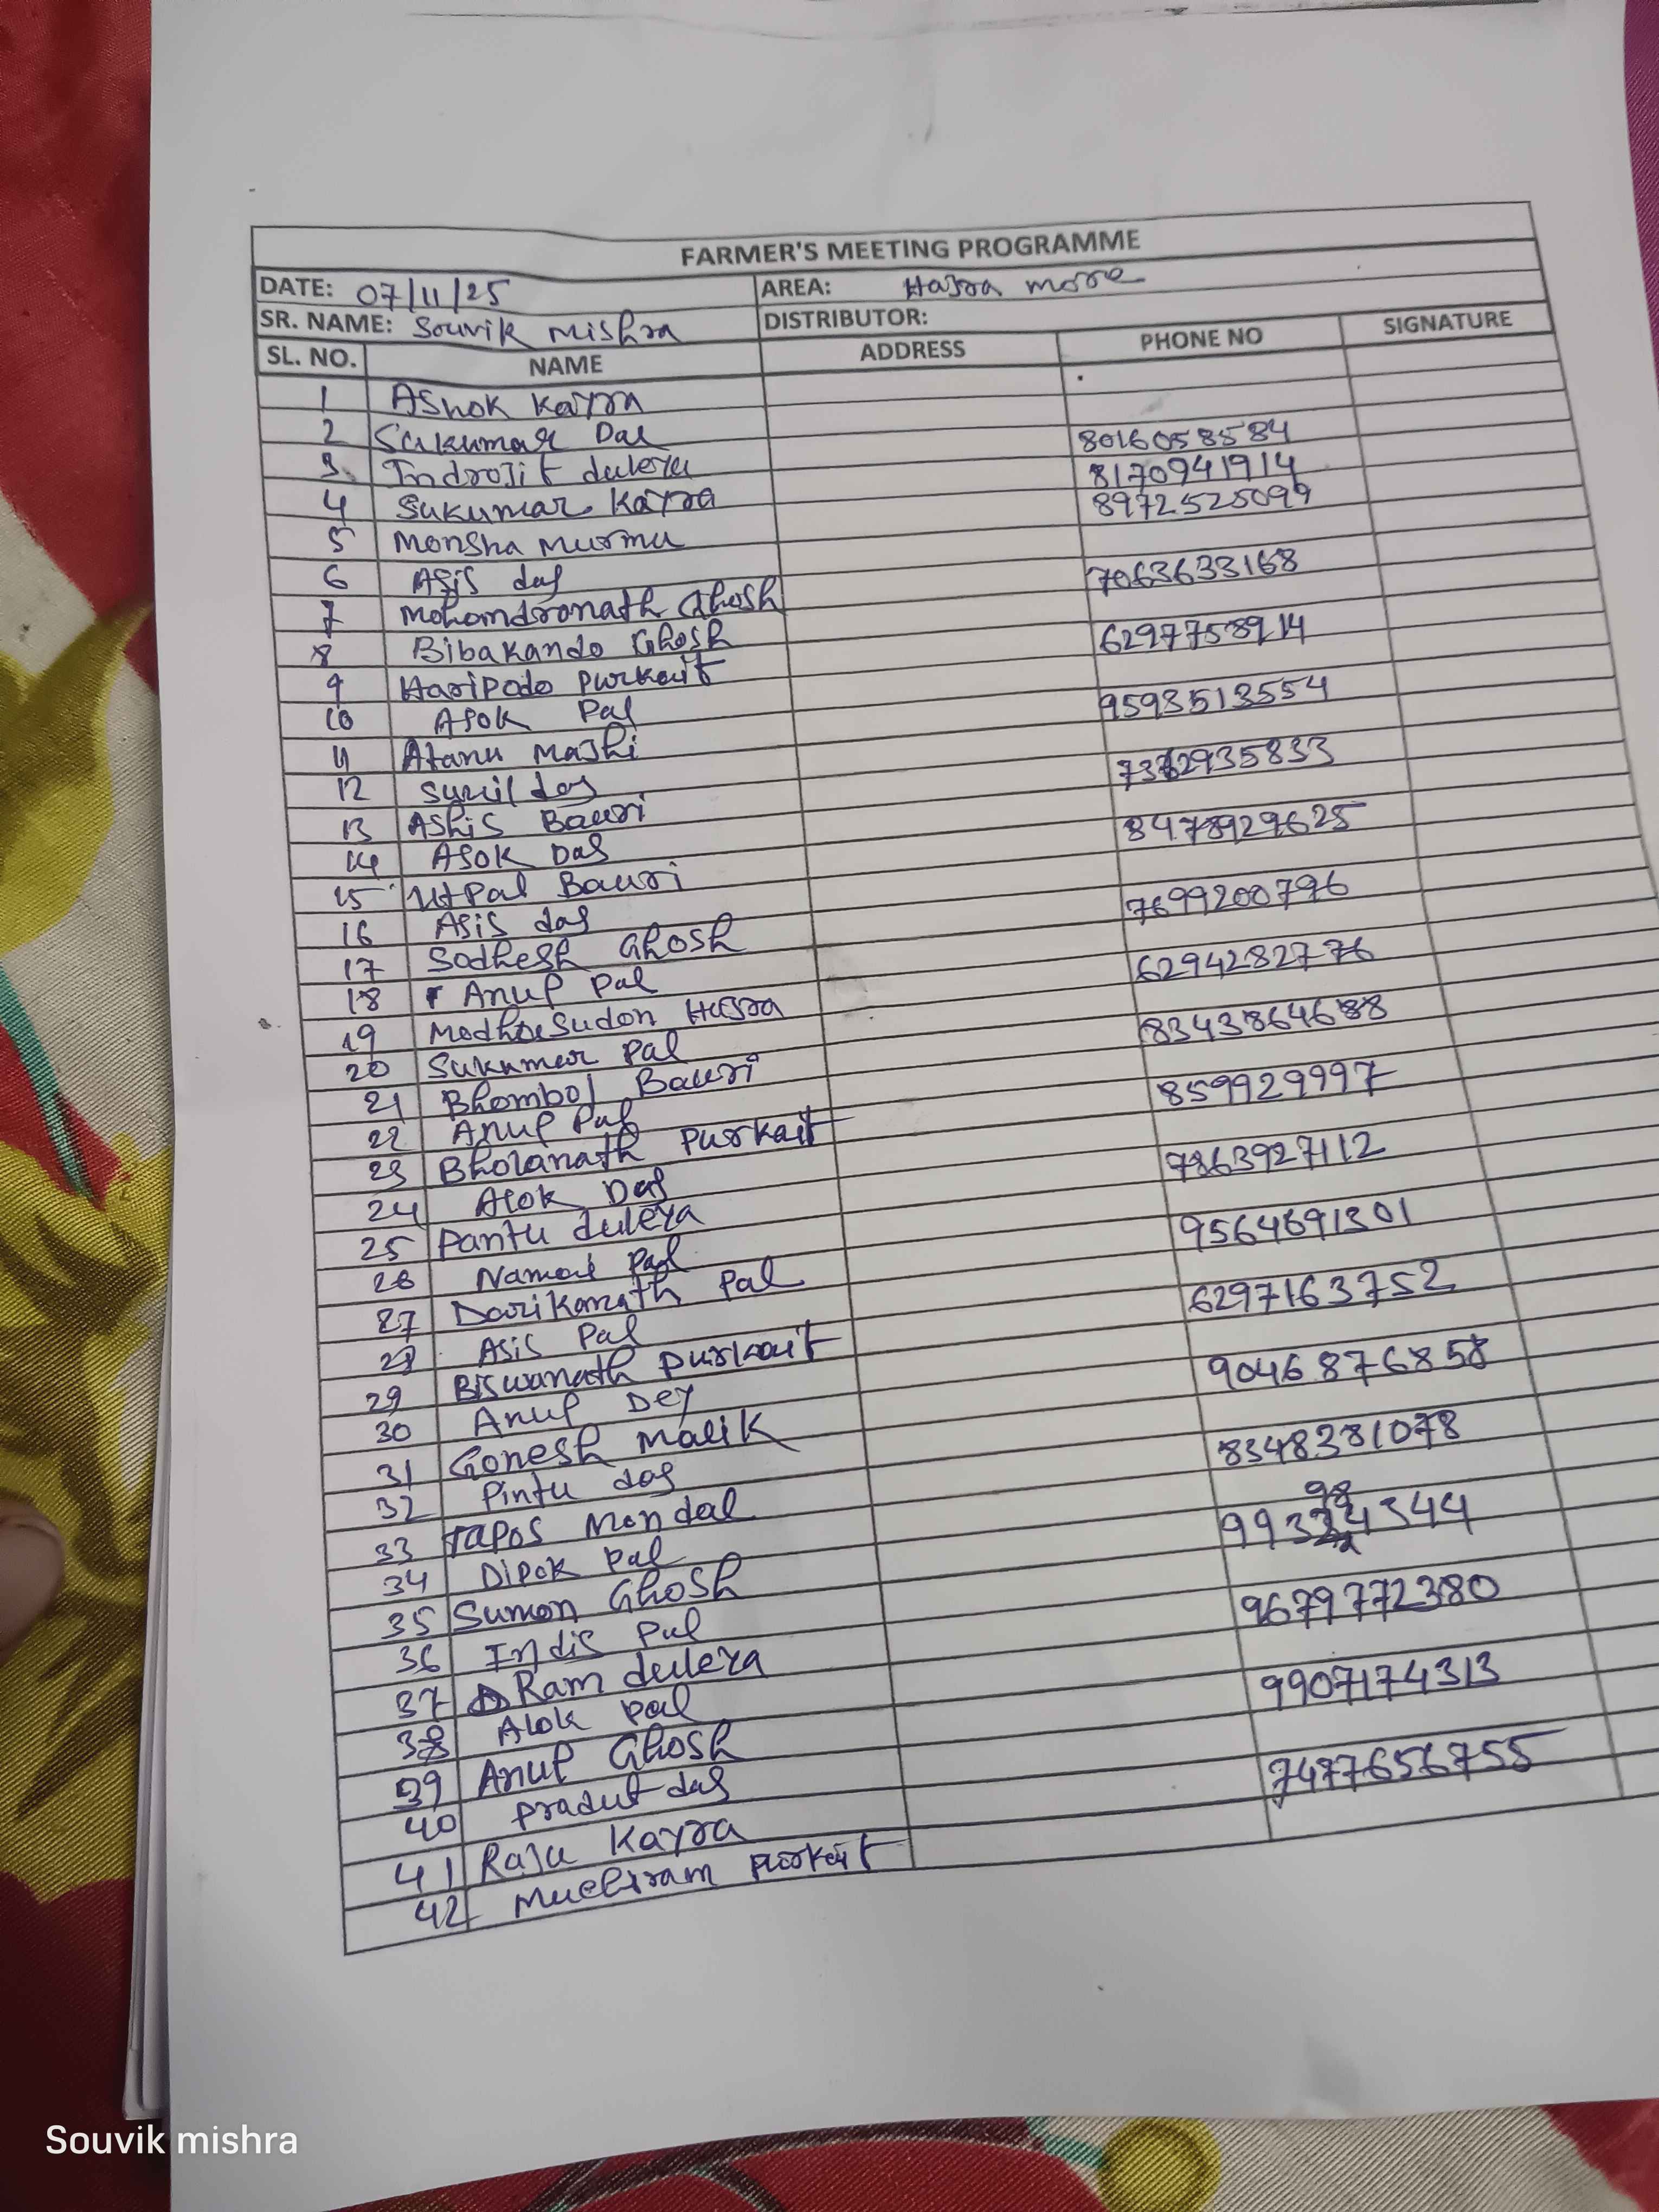 FARMER'S MEETING PROGRAMME
DATE: 07/11/25 AREA: Hajra more
SR. NAME: Souvik Mishra DISTRIBUTOR:
SL. NO. NAME ADDRESS PHONE NO SIGNATURE
1 Ashok Kayra
2 Sukumar Dal 8016058584
3 Indrojit duleya 8170941914
4 Sukumar Kayra 8972525099
5 Monsha Murmu
6 Asis das 7063633168
7 Mohondronath Ghosh
8 Bibakando Ghosh 6297758914
9 Haripodo Purkait
10 Asok Pal 9593513554
11 Atanu Mashi
12 Sunil das 7362935833
13 Ashis Bauri
14 Asok Das 8478929625
15 Utpal Bauri
16 Asis das 7699200796
17 Sodhesh Ghosh
18 Anup Pal 6294282776
19 Modhusudon Hajra
20 Sukumar Pal 8343864688
21 Bhombol Bauri
22 Anup Pal 859929997
23 Bholanath Purkait
24 Alok Das 7863927112
25 Pantu duleya
26 Namai Pal 9564691301
27 Darikanath Pal
28 Asis Pal 6297163752
29 Biswanath Purkait
30 Anup Dey 9046876858
31 Gonesh Malik
32 Pintu das 8348381078
33 Tapos Mondal
34 Dipok Pal
35 Sumon Ghosh
36 Indis Pal 9679772380
37 Ram duleya
38 Alok Pal 9907174313
39 Anup Ghosh
40 Pradut das 7477656755
41 Raju Kayra
42 Purkait
Souvik mishra